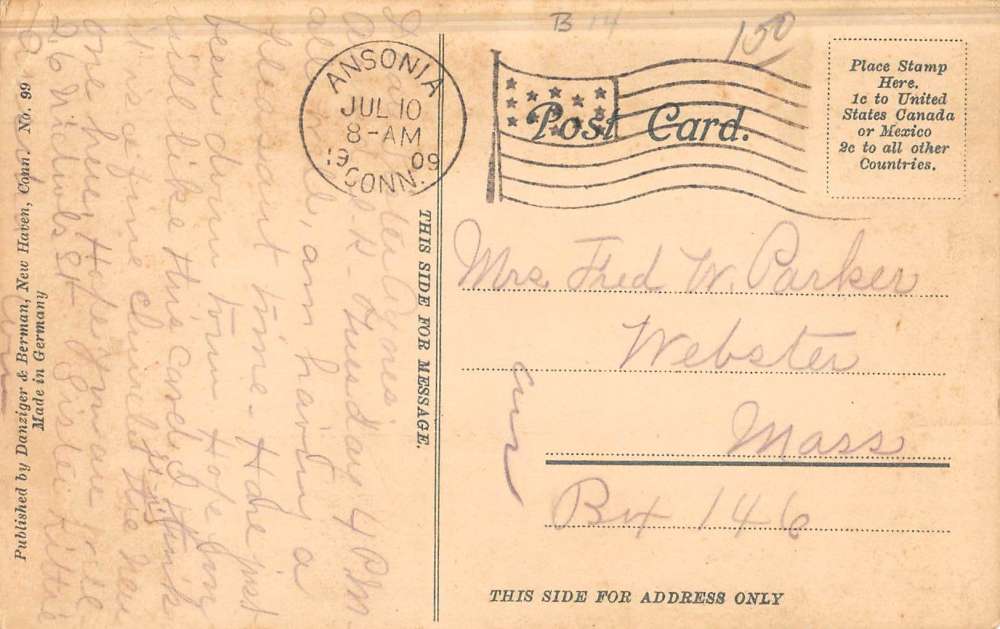 B 14
150
ANSONIA
JUL 10
8-AM
1909
CONN.
Post Card.
Place Stamp
Here.
1c to United
States Canada
or Mexico
2c to all other
Countries.
Mrs. Fred W. Parker
Webster
Mass
Box 146
THIS SIDE FOR ADDRESS ONLY
THIS SIDE FOR MESSAGE.
Sister Agnes
Tuesday 4 P.M.
all well, am having a
pleasant time - Have just
been down town Hope you
will like this card I think
it is fine claimed the new
one hers, Hope you are well
26 St Sister Kittie
Published by Danziger & Berman, New Haven, Conn. No. 99
Made in Germany